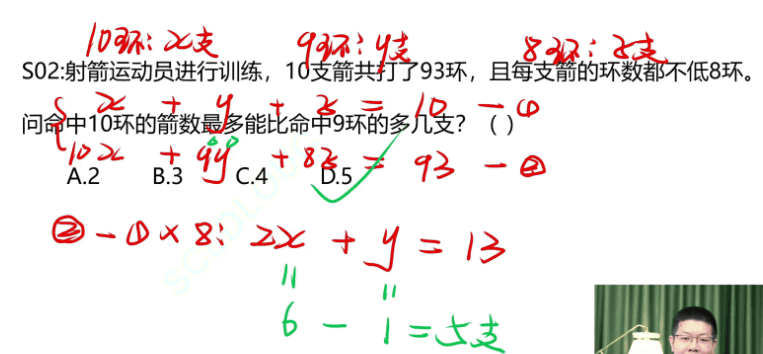 10环: x支 9环: y支 8环: z支
S02:射箭运动员进行训练，10支箭共打了93环，且每支箭的环数都不低8环。
x + y + z = 10 — ①
问命中10环的箭数最多能比命中9环的多几支？（ ）
10x + 9y + 8z = 93 — ②
A.2 B.3 C.4 D.5
② - ① × 8: 2x + y = 13
6 - 1 = 5支